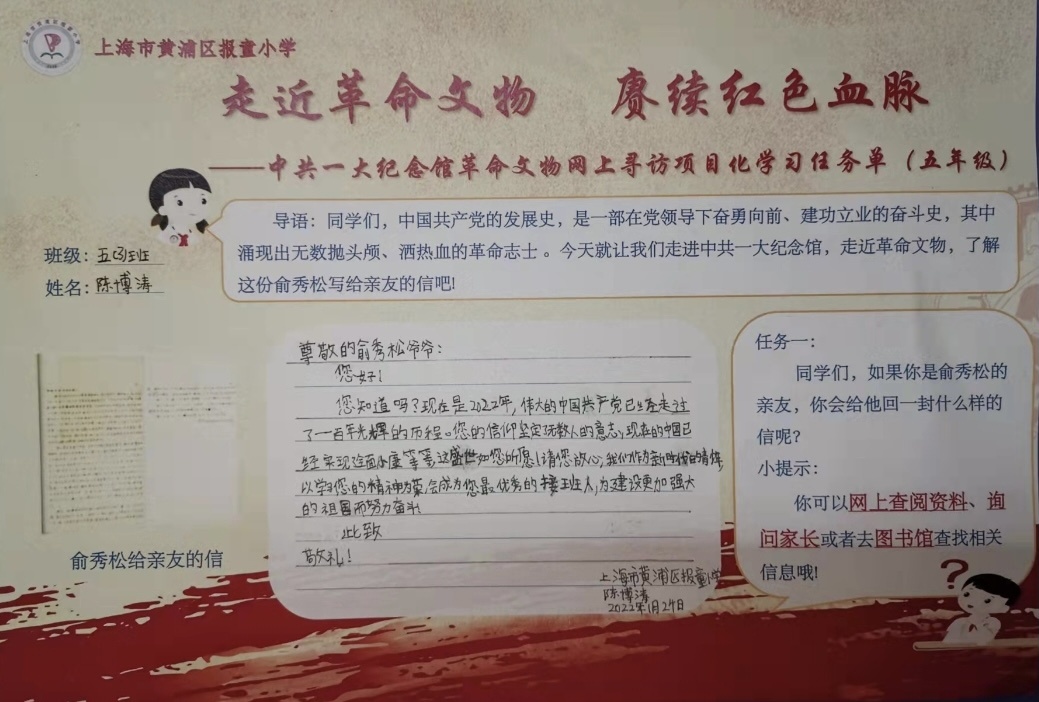 上海市黄浦区报童小学
走近革命文物 赓续红色血脉
——中共一大纪念馆革命文物网上寻访项目化学习任务单（五年级）
导语：同学们，中国共产党的发展史，是一部在党领导下奋勇向前、建功立业的奋斗史，其中
涌现出无数抛头颅、洒热血的革命志士。今天就让我们走进中共一大纪念馆，走近革命文物，了解
这份俞秀松写给亲友的信吧!
班级：五(3)班
姓名：陈博涛
尊敬的俞秀松爷爷：
您好!
您知道吗?现在是2022年,伟大的中国共产党已经走过
了一百年光辉的历程。您的信仰坚定无数人的意志,现在的中国已
经实现全面小康等等,这盛世如您所愿!请您放心,我们作为新时代的青年
以学习您的精神为荣,会成为您最优秀的接班人,为建设更加强大
的祖国而努力奋斗
此致
敬礼!
上海市黄浦区报童小学
陈博涛
2022年1月24日
俞秀松给亲友的信
任务一：
同学们，如果你是俞秀松的
亲友，你会给他回一封什么样的
信呢？
小提示：
你可以网上查阅资料、询
问家长或者去图书馆查找相关
信息哦!
?